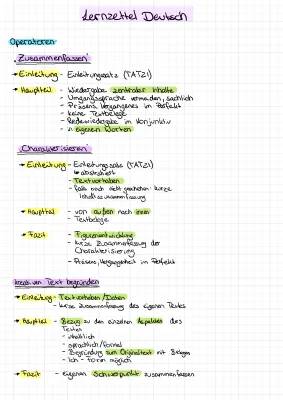 Lernzettel Deutsch
Operatoren
"Zusammenfassen"
→ Einleitung - Einleitungssatz (TATZI)
→ Hauptteil - Wiedergabe zentraler Inhalte
- Umgangssprache vermeiden, sachlich
- Präsens, Vergangenes im Perfekt
- keine Textbelege
- Redewiedergabe im Konjunktiv
- in eigenen Worten
"Charakterisieren"
→ Einleitung - Einleitungssatz (TATZI)
- Textvorhaben
- falls noch nicht geschehen: kurze
Inhaltszusammenfassung
→ Hauptteil - von außen nach innen
- Textbelege
→ Fazit - Figurenentwicklung
- kurze Zusammenfassung der
Charakterisierung
- Präsens, Vergangenheit im Perfekt
kreativen Text begründen
→ Einleitung - Textvorhaben
- kurze Zusammenfassung des eigenen Textes
→ Hauptteil - Bezug zu den einzelnen Aspekten des
Textes
- inhaltlich
- sprachlich/formal
- Begründung zum Originaltext mit Belegen
- Ich-Form möglich
→ Fazit - eigenen Schwerpunkt zusammenfassen